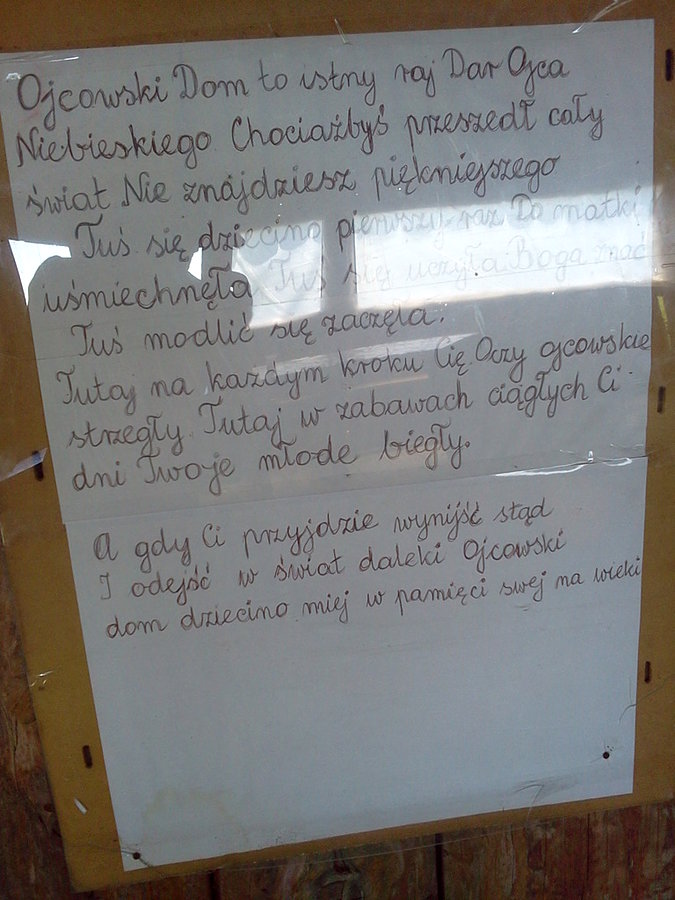 Ojcowski Dom to istny raj Dar Ojca
Niebieskiego Chociażbyś przeszedł cały
świat Nie znajdziesz piękniejszego
Tuś się dziecino pierwszy raz Do matki
uśmiechnęła Tuś się uczyła Boga znać
Tuś modlić się zaczęła.
Tutaj na każdym kroku Cię Oczy ojcowskie
strzegły Tutaj w zabawach ciągłych Ci
dni Twoje młode biegły.
A gdy Ci przyjdzie wynijść stąd
I odejść w świat daleki Ojcowski
dom dziecino miej w pamięci swej na wieki